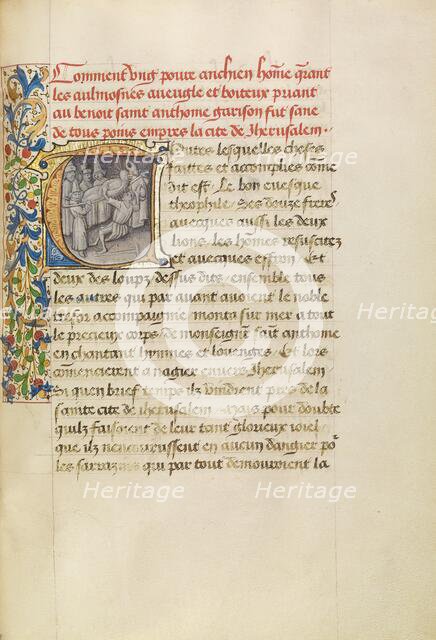 Comment ung povre anchien homme querant
les aulmosnes aveugle et boiteux priant
au benoit saint anthoine garison fut sane
de tous poins empres la cite de Jherusalem.
Toutes lesquelles choses
faittes et acomplies come
dit est. Le bon evesque
theophile, Ses douze freres
avecques aussi les deux
lions. les hommes resuscitez
et avecques effron. Et
deux des loupz dessus dits, ensemble tous
les autres qui par avant avoient le noble
tresor accompaigne monta sur mer a tout
le precieux corps de monseignr saint anthoine
en chantant hymnes et louenges. Et lors
commencierent a nagier envers Jherusalem
Si quen brief temps ilz vindrent pres de la
sainte cite de iherusalem. Mais pour doubte
quilz faisoient de leur tant glorieux ioiel
que ilz nencourussent en aucun dangier por
les sarrazins qui par tout demouroient la
Heritage
Heritage
Heritage
Heritage
Heritage
Heritage